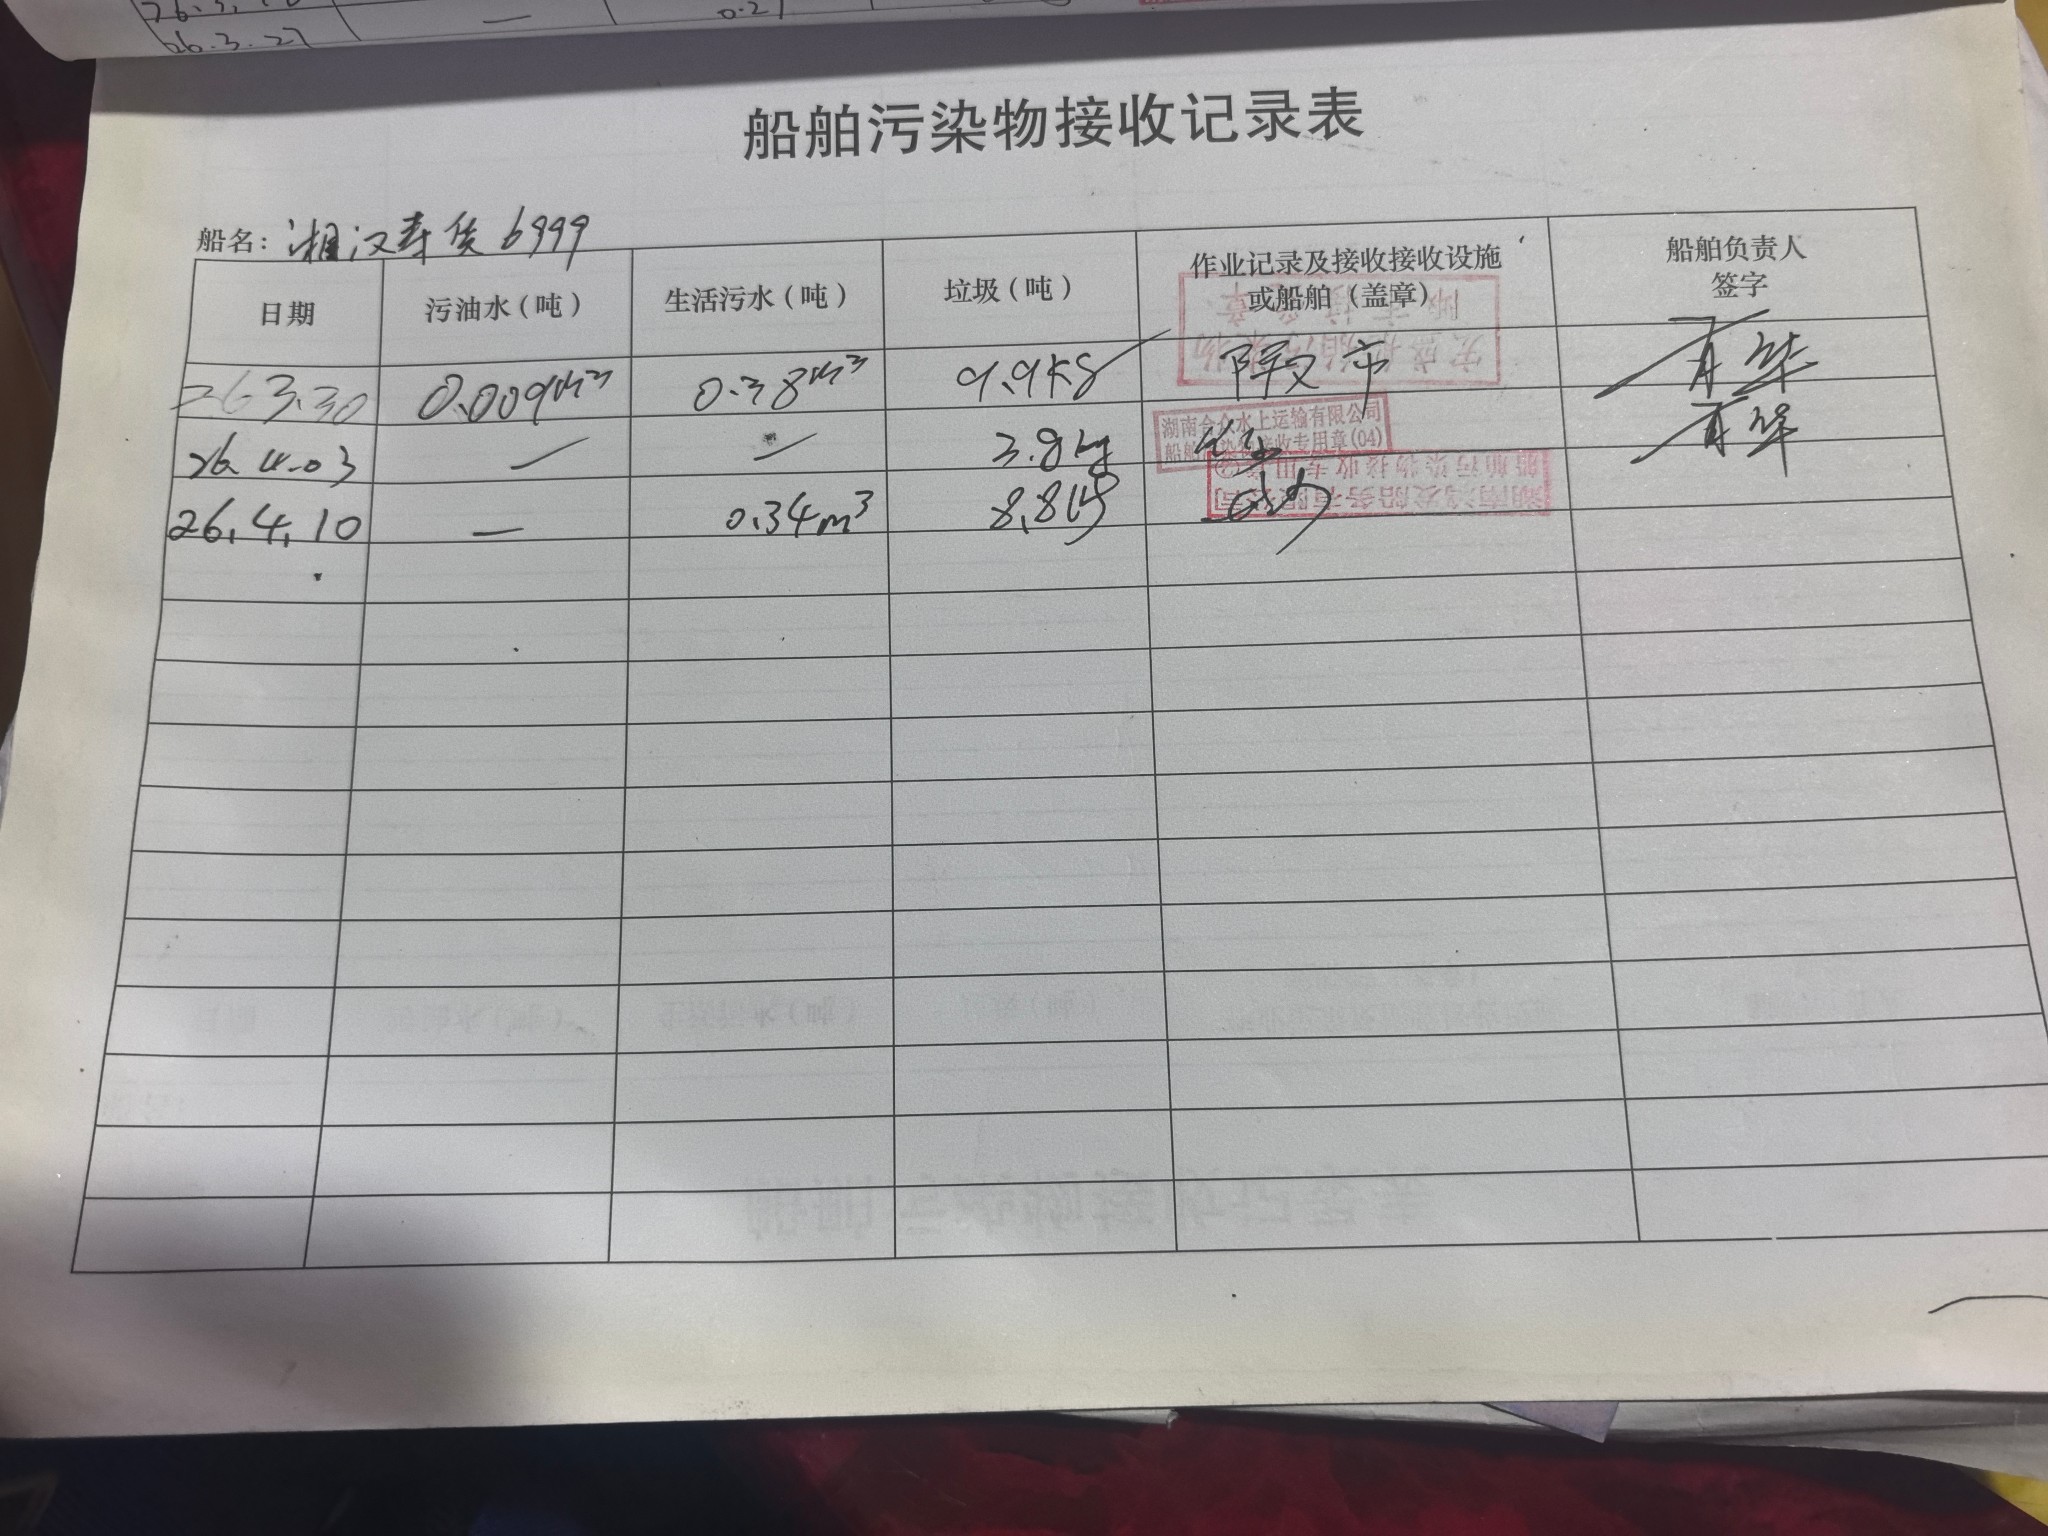 26.3.27 — 0.27
船舶污染物接收记录表
船名：湘汉寿货6999
日期 污油水（吨） 生活污水（吨） 垃圾（吨） 作业记录及接收接收设施或船舶（盖章） 船舶负责人签字
26 3.30 0.009m³ 0.38m³ 9.9kg
26.4.03 — — 3.8kg
湖南会众水上运输有限公司
船舶污染物接收专用章(04)
26.4.10 — 0.34m³ 8.8kg
船舶污染物接收专用章